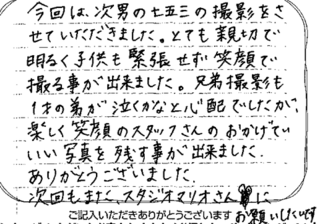 今回は、次男の七五三の撮影をさ
せていただきました。とても親切で
明るく子供も緊張せず笑顔で
撮る事が出来ました。兄弟撮影も
1才の弟が泣くかなと心配でしたが、
楽しく笑顔のスタッフさんのおかげで
いい写真を残す事が出来ました
ありがとうございました。
次回もまたスタジオマリオさんに
ご記入いただきありがとうございます お願いしたいです